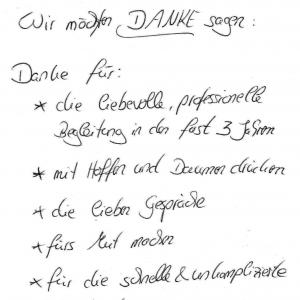 Wir möchten DANKE sagen:
Danke für:
* die liebevolle, professionelle
Begleitung in den fast 3 Jahren
* mit Hoffen und Daumen drücken
* die lieben Gespräche
* fürs Mut machen
* für die schnelle & unkomplizierte